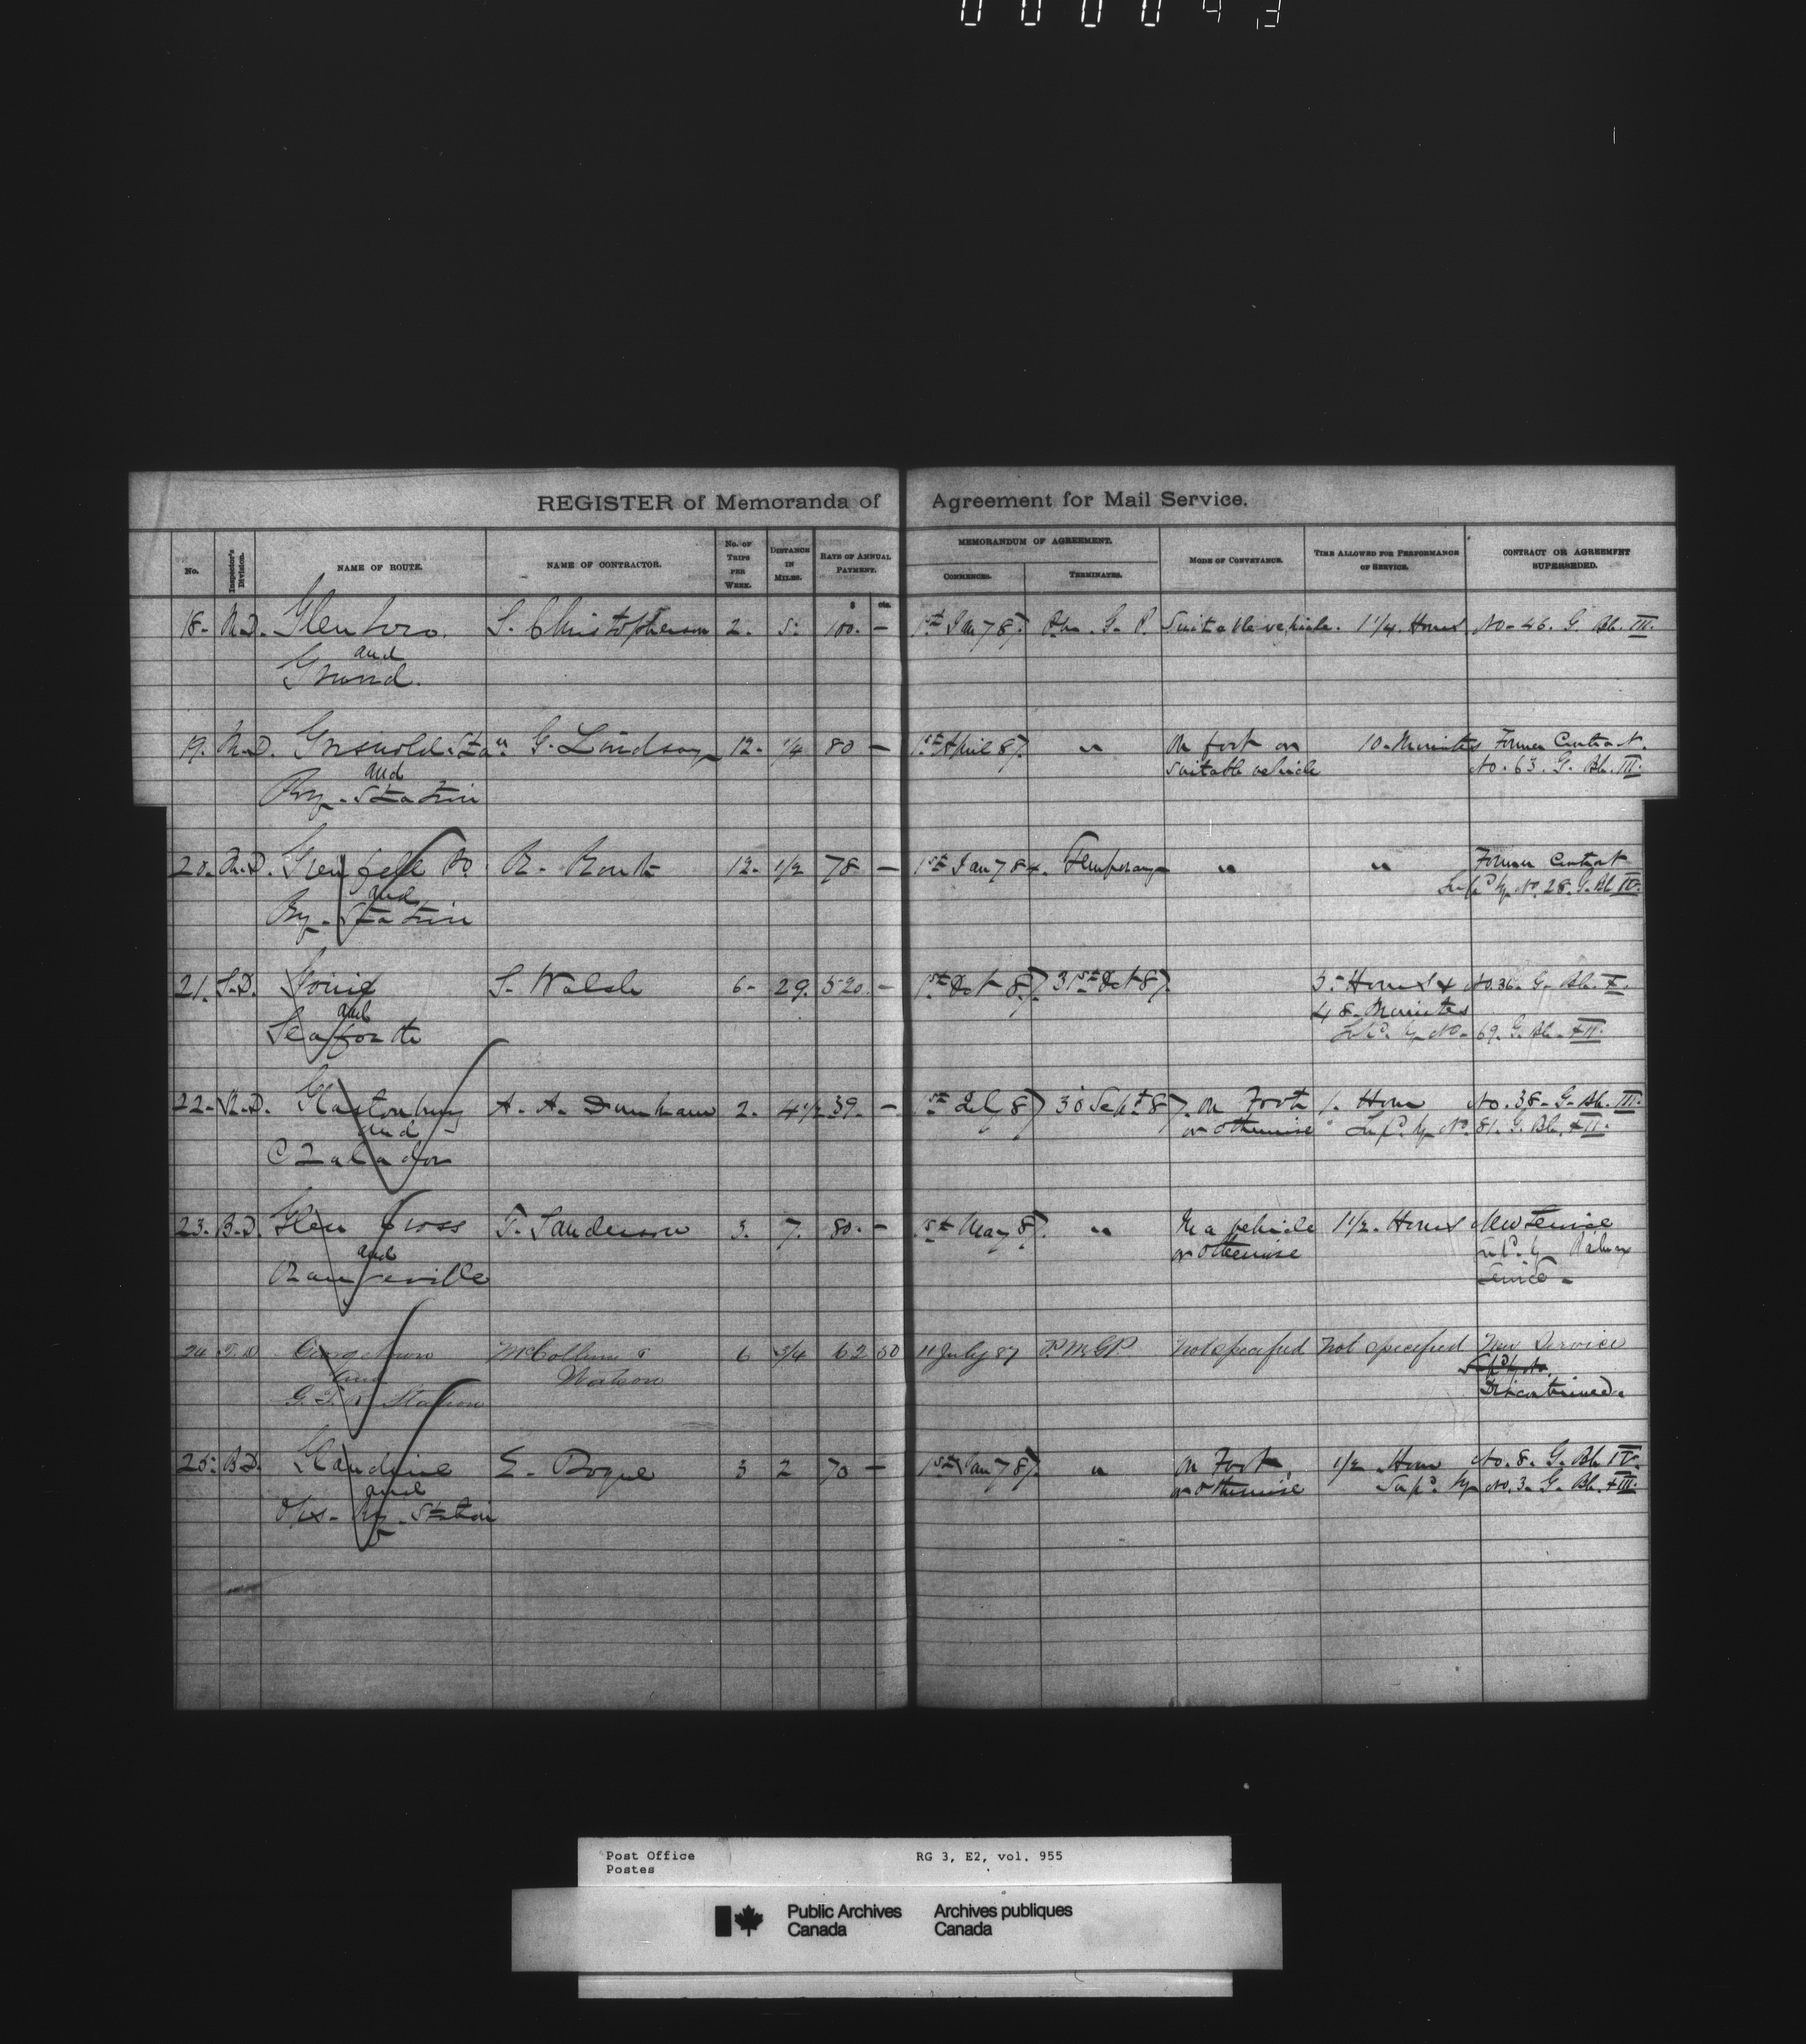 0 0 0 0 4 3
REGISTER of Memoranda of Agreement for Mail Service.
No. Inspector's Division. NAME OF ROUTE. NAME OF CONTRACTOR. No. OF TRIPS PER WEEK. DISTANCE IN MILES. RATE OF ANNUAL PAYMENT. MEMORANDUM OF AGREEMENT. COMMENCES. TERMINATES. MODE OF CONVEYANCE. TIME ALLOWED FOR PERFORMANCE OF SERVICE. CONTRACT OR AGREEMENT SUPERSEDED.
$ cts.
18. M.D. Glenboro. S. Christopherson 2. 5. 100. — 1st Jany 87. G. P. Suitable vehicle. 1 1/4. Hours No. 46. G. Bk. III.
and
Grund.
19. M.D. Griswold Stan G. Lindsay 12. 1/4 80 — 1st April 87 " On foot or 10. Minutes Former Contract.
and suitable vehicle No. 63. G. Bk. III.
Ry. Station
20. M.D. Grenfell R. Rourk 12. 1/2 78 — 1st Jany 84. Temporary " " Former Contract
and Supd by No. 28. G. Bk IV.
Ry. Station
21. S.D. Gowrie S. Walsh 6. 29. 520. — 1st Oct 87. 31st Oct 87. 5. Hours & No. 36. G. Bk. X.
and 48. Minutes
Seaforth Supd. by No. 69. G. Bk. XII.
22. K.D. Glastonbury A. A. Dunham 2. 4 1/2 39. — 1st July 87 30 Sept 87. On Foot 1. Hour No. 38. G. Bk. III.
and or otherwise Supd. by No. 81. G. Bk. XII.
23. B.D. Glen Cross T. Sanderson 3. 7. 80. — 1st May 87. " In a vehicle 1 1/2. Hours New Service
and or otherwise Supd. by Railway
Orangeville Service.
24 T.D Georgetown McCollum & 6 3/4 62 50 11 July 87 P.M.G.P. Not specified Not specified New Service
and Watson Supd by No.
G. T. R Station Discontinued.
25. B.D. Glandine E. Bogue 3 2 70 — 1st Jany 87. " On Foot 1/2 Hour No. 8. G. Bk. IV.
and or otherwise Supd. by No. 3. G. Bk. XIII.
Ops. Ry. Station
Post Office RG 3, E2, vol. 955
Postes
Public Archives Archives publiques
Canada Canada